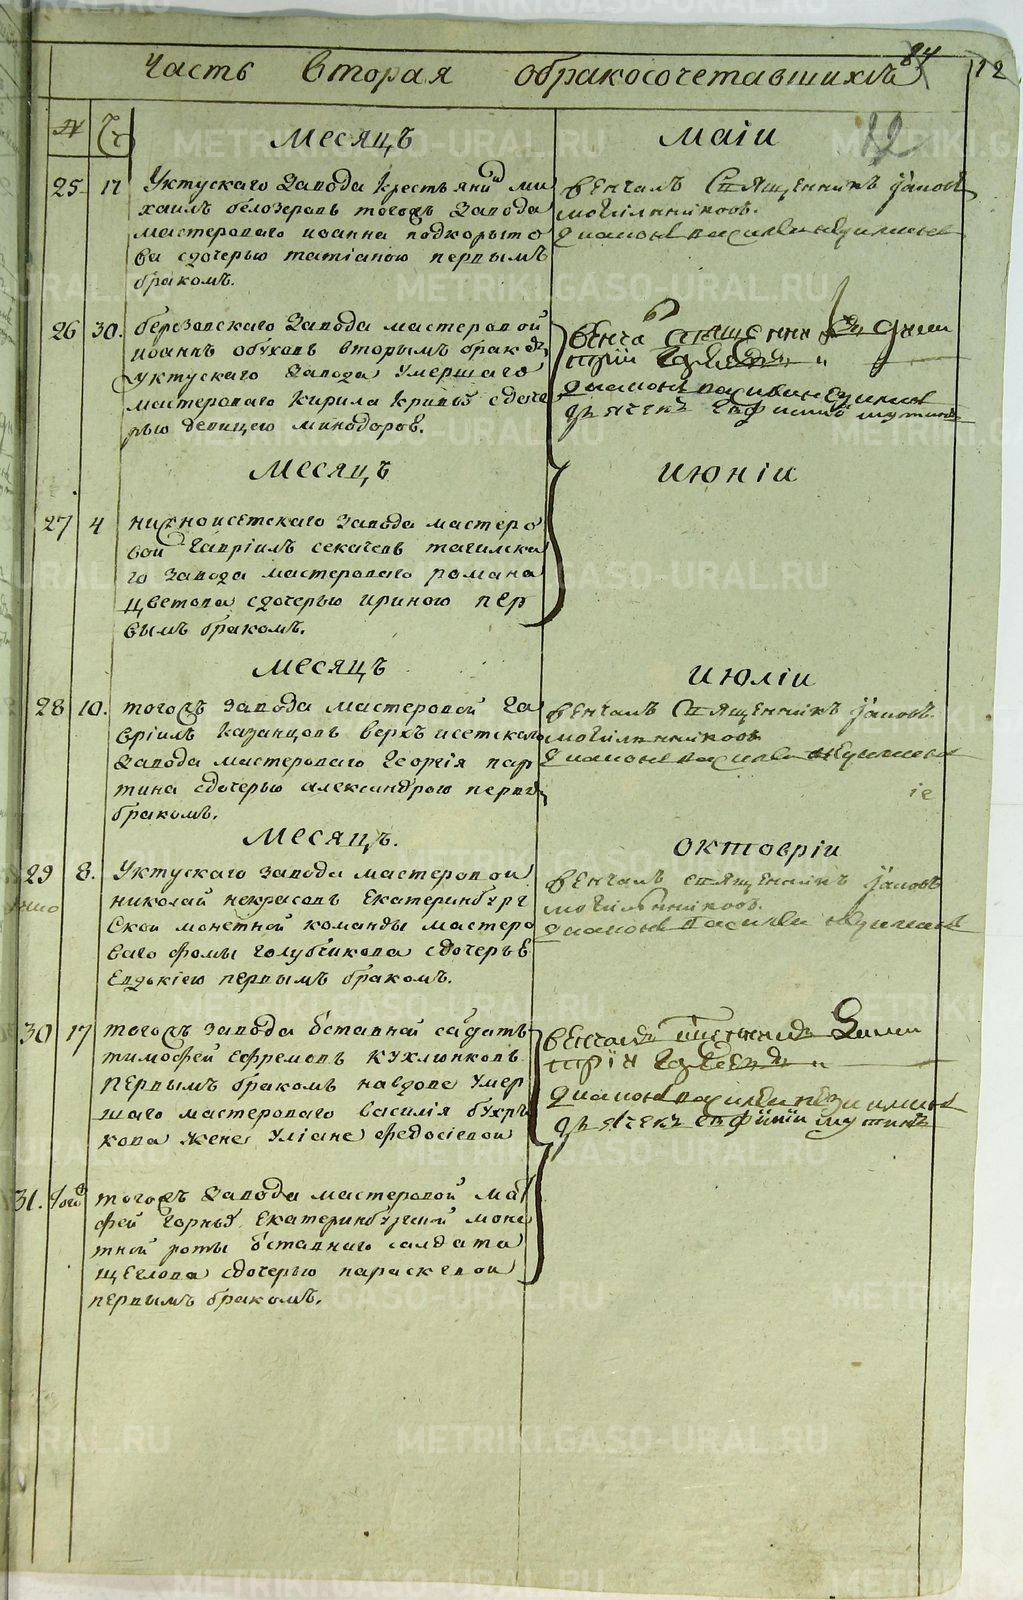 Часть Вторая обракосочетавшихсъ 84 12
№ Ч
месяцъ маіи 12
25 17 Уктускаго завода крестьянинъ ми
хаилъ белозеровъ тогожъ завода
мастероваго иоанна подкорыто
ва сдочерью татіаною первымъ
бракомъ.
венчалъ священникъ Іаковъ
могильниковъ.
диаконъ василеи
26 30. березовскаго завода мастеровой
иоаннъ обуховъ вторымъ бракомъ
уктускаго завода умершаго
мастероваго кирила кривых сдоче
рью девицею минодорою.
венча священникъ Дими
трій
диаконъ василеи
дьячекъ евфимий
месяцъ июніи
27 4 нижноисетскаго завода мастеро
вой гавріилъ секачевъ тагилска
го завода мастероваго романа
цветова сдочерью ириною пер
вымъ бракомъ.
месяцъ июліи
28 10. тогожъ завода мастеровой га
вріилъ казанцовъ верхъ исетскаго
завода мастероваго георгія пар
тина сдочерью александрою первы
бракомъ.
венчалъ священникъ Іаковъ
могильниковъ
диаконъ василеи
іе
месяцъ. октовріи
29 8. Уктускаго завода мастеровои
николай некрасовъ екатеринбург
ской монетной команды мастеро
ваго фомы голубчикова сдочерьЕ
Евдокіею первымъ бракомъ.
венчалъ священникъ Іаковъ
могильниковъ.
диаконъ василеи
30 17 тогожъ завода отставной салдатъ
тимофей ефремовъ кухлюнковъ
первымъ бракомъ навдове умер
шаго мастероваго василія
жене Уліане федосіевой
венчалъ священникъ Дими
трій
диаконъ василеи
дьячекъ евфимий
31. тогожъ завода мастеровой мат
фей горных екатеринбургской моне
тной роты отставнаго салдата
щеглова сдочерью параскевои
первымъ бракомъ.
METRIKI.GASO-URAL.RU